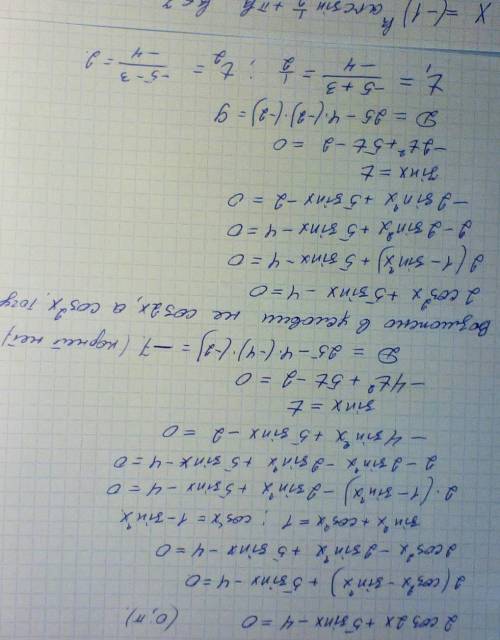 2 cos 2x + 5 sin x - 4 = 0 (0; π)
2 (cos²x - sin²x) + 5 sin x - 4 = 0
2 cos²x - 2 sin²x + 5 sin x - 4 = 0
sin²x + cos²x = 1 ; cos²x = 1 - sin²x
2 · (1 - sin²x) - 2 sin²x + 5 sin x - 4 = 0
2 - 2 sin²x - 2 sin²x + 5 sin x - 4 = 0
- 4 sin²x + 5 sin x - 2 = 0
sin x = t
-4t² + 5t - 2 = 0
D = 25 - 4 · (-4) · (-2) = -7 (корней нет)
Возможно в условии не cos 2x, а cos²x, тогда
2 cos²x + 5 sin x - 4 = 0
2 (1 - sin²x) + 5 sin x - 4 = 0
2 - 2 sin²x + 5 sin x - 4 = 0
- 2 sin²x + 5 sin x - 2 = 0
sin x = t
-2t² + 5t - 2 = 0
D = 25 - 4 · (-2) · (-2) = 9
t₁ = (-5 + 3)/(-4) = 1/2 ; t₂ = (-5 - 3)/(-4) = 2.
X = (-1)ᵏ arcsin 1/2 + πk, k ∈ Z